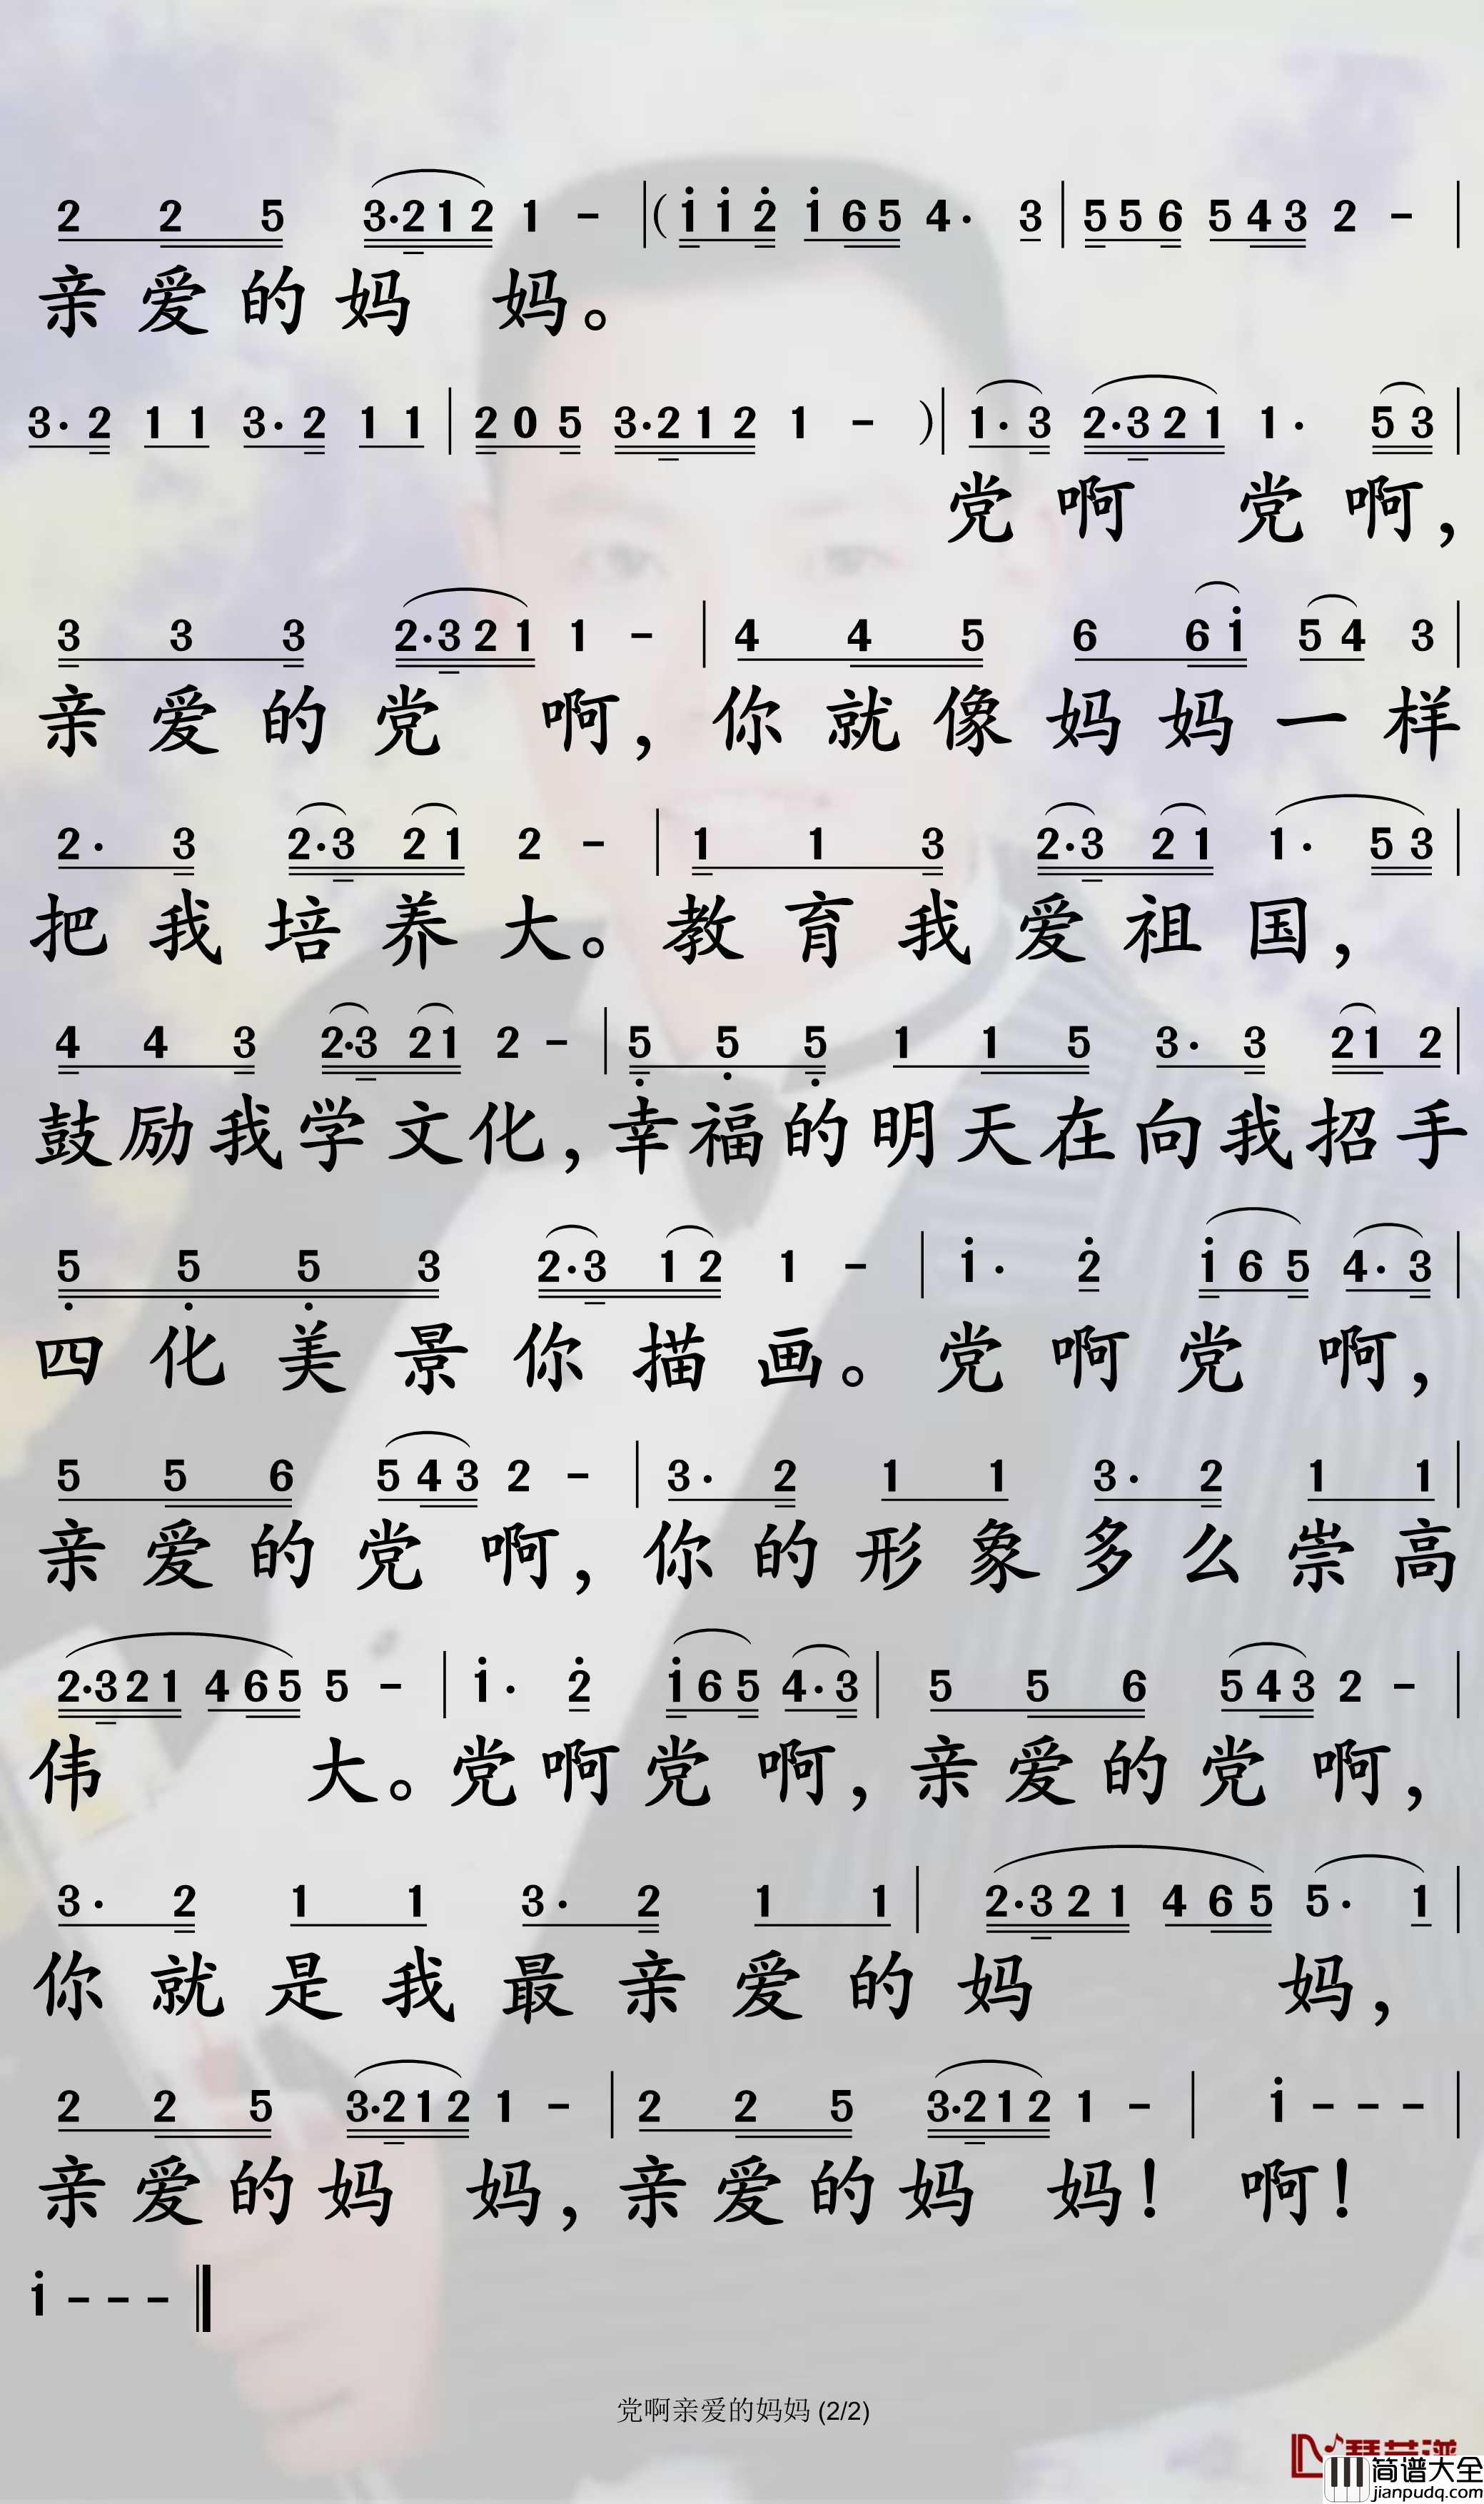 2 2 5 3·2 1 2 1 - | ( i i 2 i 6 5 4· 3 | 5 5 6 5 4 3 2 - |
亲爱的妈 妈。
3· 2 1 1 3· 2 1 1 | 2 0 5 3·2 1 2 1 - ) | 1· 3 2·3 2 1 1· 5 3 |
党啊 党啊，
3 3 3 2·3 2 1 1 - | 4 4 5 6 6 i 5 4 3 |
亲爱的党 啊，你就像妈妈一样
2· 3 2·3 2 1 2 - | 1 1 3 2·3 2 1 1· 5 3 |
把我培养大。教育我爱祖国，
4 4 3 2·3 2 1 2 - | 5 5 5 1 1 5 3· 3 2 1 2 |
鼓励我学文化，幸福的明天在向我招手
5 5 5 3 2·3 1 2 1 - | i· 2 i 6 5 4· 3 |
四化美景你描画。党啊党 啊，
5 5 6 5 4 3 2 - | 3· 2 1 1 3· 2 1 1 |
亲爱的党 啊，你的形象多么崇高
2·3 2 1 4 6 5 5 - | i· 2 i 6 5 4· 3 | 5 5 6 5 4 3 2 - |
伟 大。党啊党 啊，亲爱的党 啊，
3· 2 1 1 3· 2 1 1 | 2·3 2 1 4 6 5 5· 1 |
你就是我最亲爱的妈 妈，
2 2 5 3·2 1 2 1 - | 2 2 5 3·2 1 2 1 - | i - - - |
亲爱的妈 妈，亲爱的妈 妈！ 啊！
i - - - ‖
党啊亲爱的妈妈 (2/2)
简谱大全
jianpudq.com